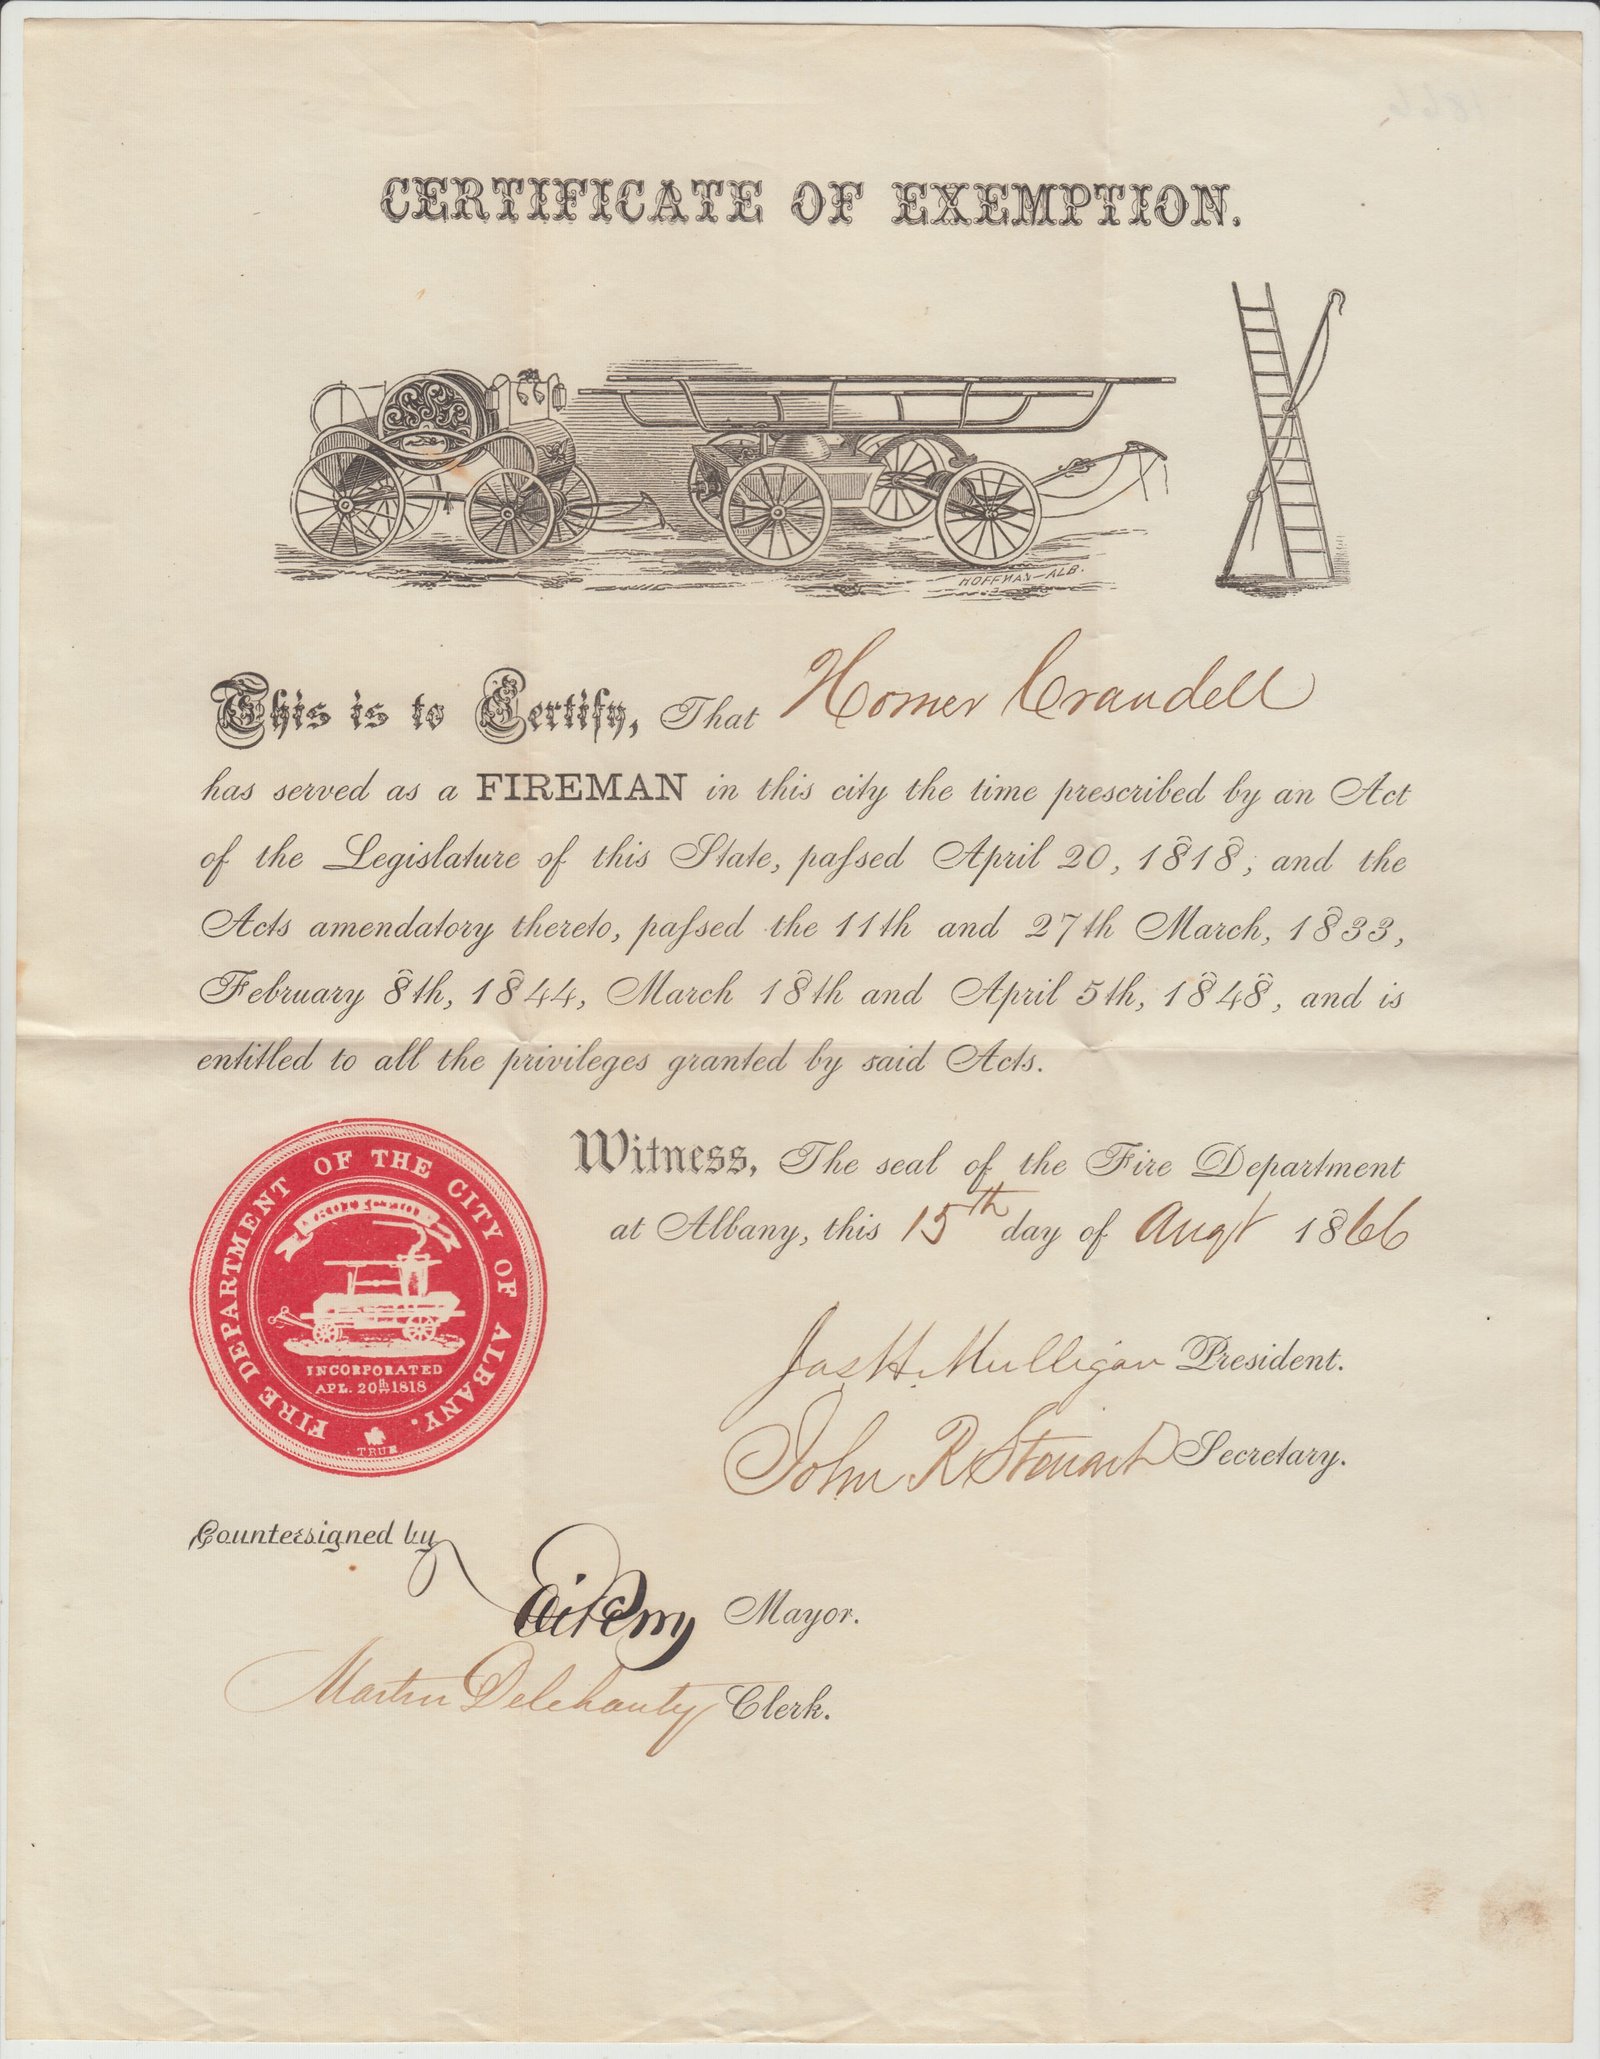 CERTIFICATE OF EXEMPTION.
HOFFMAN-ALB.
This is to Certify, That Homer Crandell
has served as a FIREMAN in this city the time prescribed by an Act
of the Legislature of this State, passed April 20, 1818; and the
Acts amendatory thereto, passed the 11th and 27th March, 1833,
February 8th, 1844, March 18th and April 5th, 1848, and is
entitled to all the privileges granted by said Acts.
FIRE DEPARTMENT OF THE CITY OF ALBANY.
INCORPORATED
APL. 20th 1818
TRUE
Witness, The seal of the Fire Department
at Albany, this 15th day of Augt 1866
Jas H. Mulligan President.
John R Stewart Secretary.
Countersigned by
Perry Mayor.
Martin Delehanty Clerk.